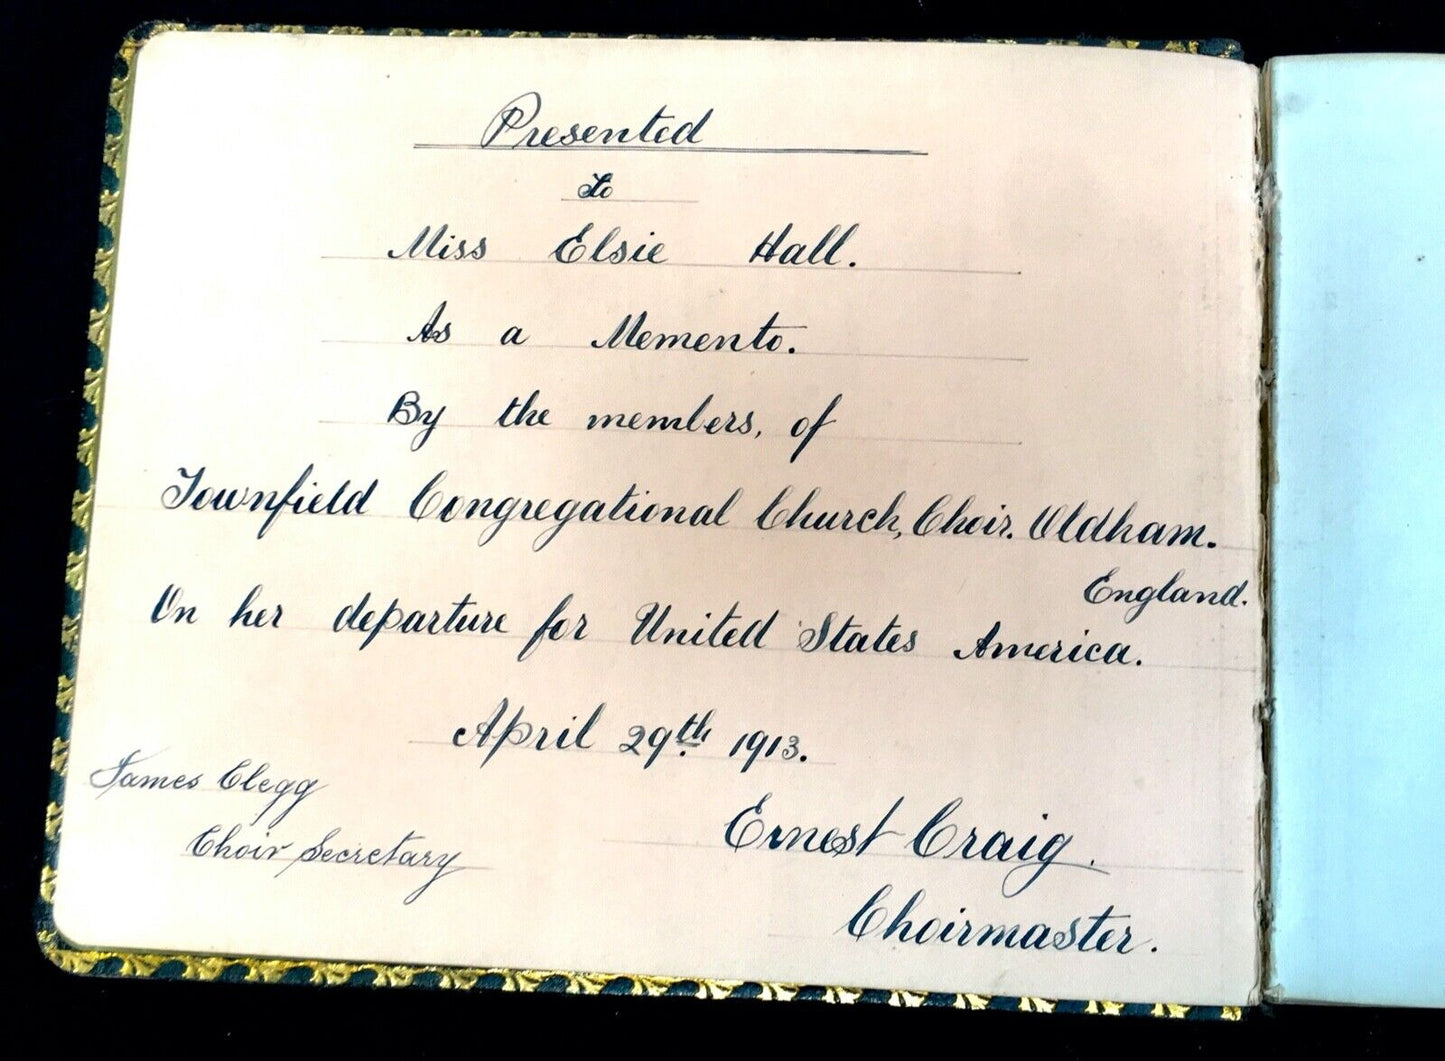 Presented
To
Miss Elsie Hall.
As a Memento.
By the members, of
Townfield Congregational Church, Choir. Oldham.
England.
On her departure for United States America.
April 29th 1913.
James Clegg
Choir Secretary
Ernest Craig.
Choirmaster.